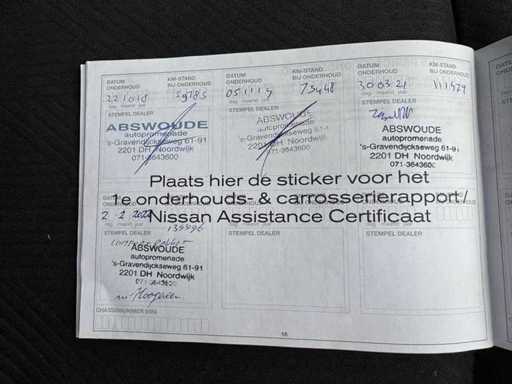 DATUM ONDERHOUD
KM-STAND BIJ ONDERHOUD
DATUM ONDERHOUD
KM-STAND BIJ ONDERHOUD
DATUM ONDERHOUD
KM-STAND BIJ ONDERHOUD
051119
73448
300321
dag maand jaar
dag maand jaar
dag maand jaar
STEMPEL DEALER
STEMPEL DEALER
STEMPEL DEALER
ABSWOUDE
autopromenade
's-Gravendijckseweg 61-91
2201 DH Noordwijk
071-3643600
ABSWOUDE
autopromenade
's-Gravendijckseweg 61-
2201 DH Noordwijk
071-3643600
ABSWOUDE
autopromenade
's-Gravendijckseweg 61-91
2201 DH Noordwijk
071-3643600
Plaats hier de sticker voor het
1e onderhouds- & carrosserierapport /
Nissan Assistance Certificaat
2-2 2022
STEMPEL DEALER
STEMPEL DEALER
STEMPEL DEALER
ABSWOUDE
autopromenade
's-Gravendijckseweg 61-91
2201 DH Noordwijk
071-3643600